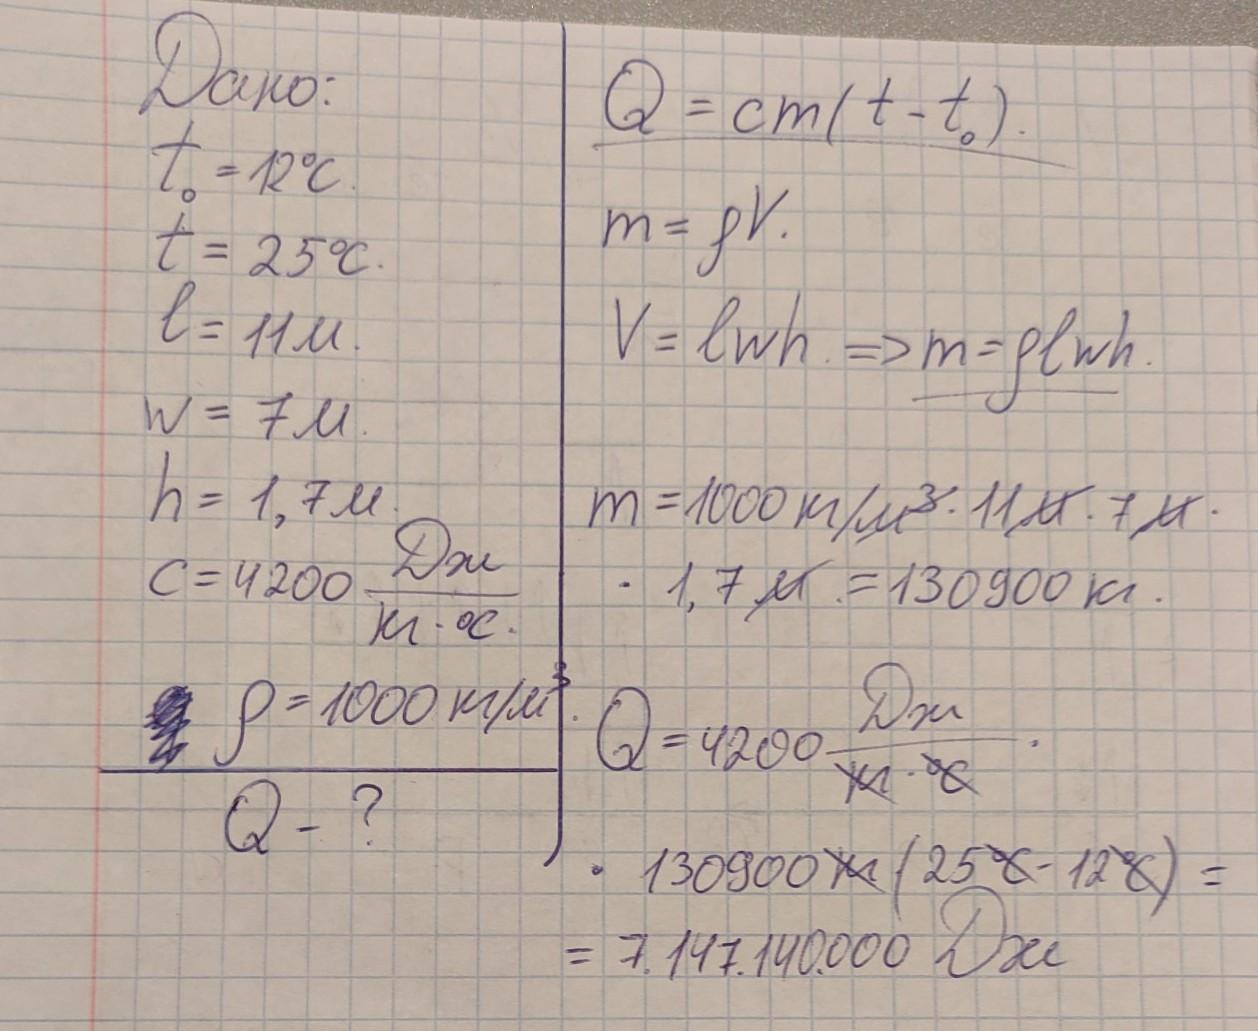 Дано:
t₀ = 12°C.
t = 25°C.
l = 11м.
w = 7м.
h = 1,7м.
c = 4200 Дж/кг·°C.
ρ = 1000 кг/м³.
Q - ?
Q = cm(t - t₀).
m = ρV.
V = lwh. => m = ρlwh.
m = 1000 кг/м³ · 11м · 7м ·
· 1,7м. = 130900 кг.
Q = 4200 Дж/кг·°C ·
· 130900 кг (25°C - 12°C) =
= 7.147.140.000 Дж